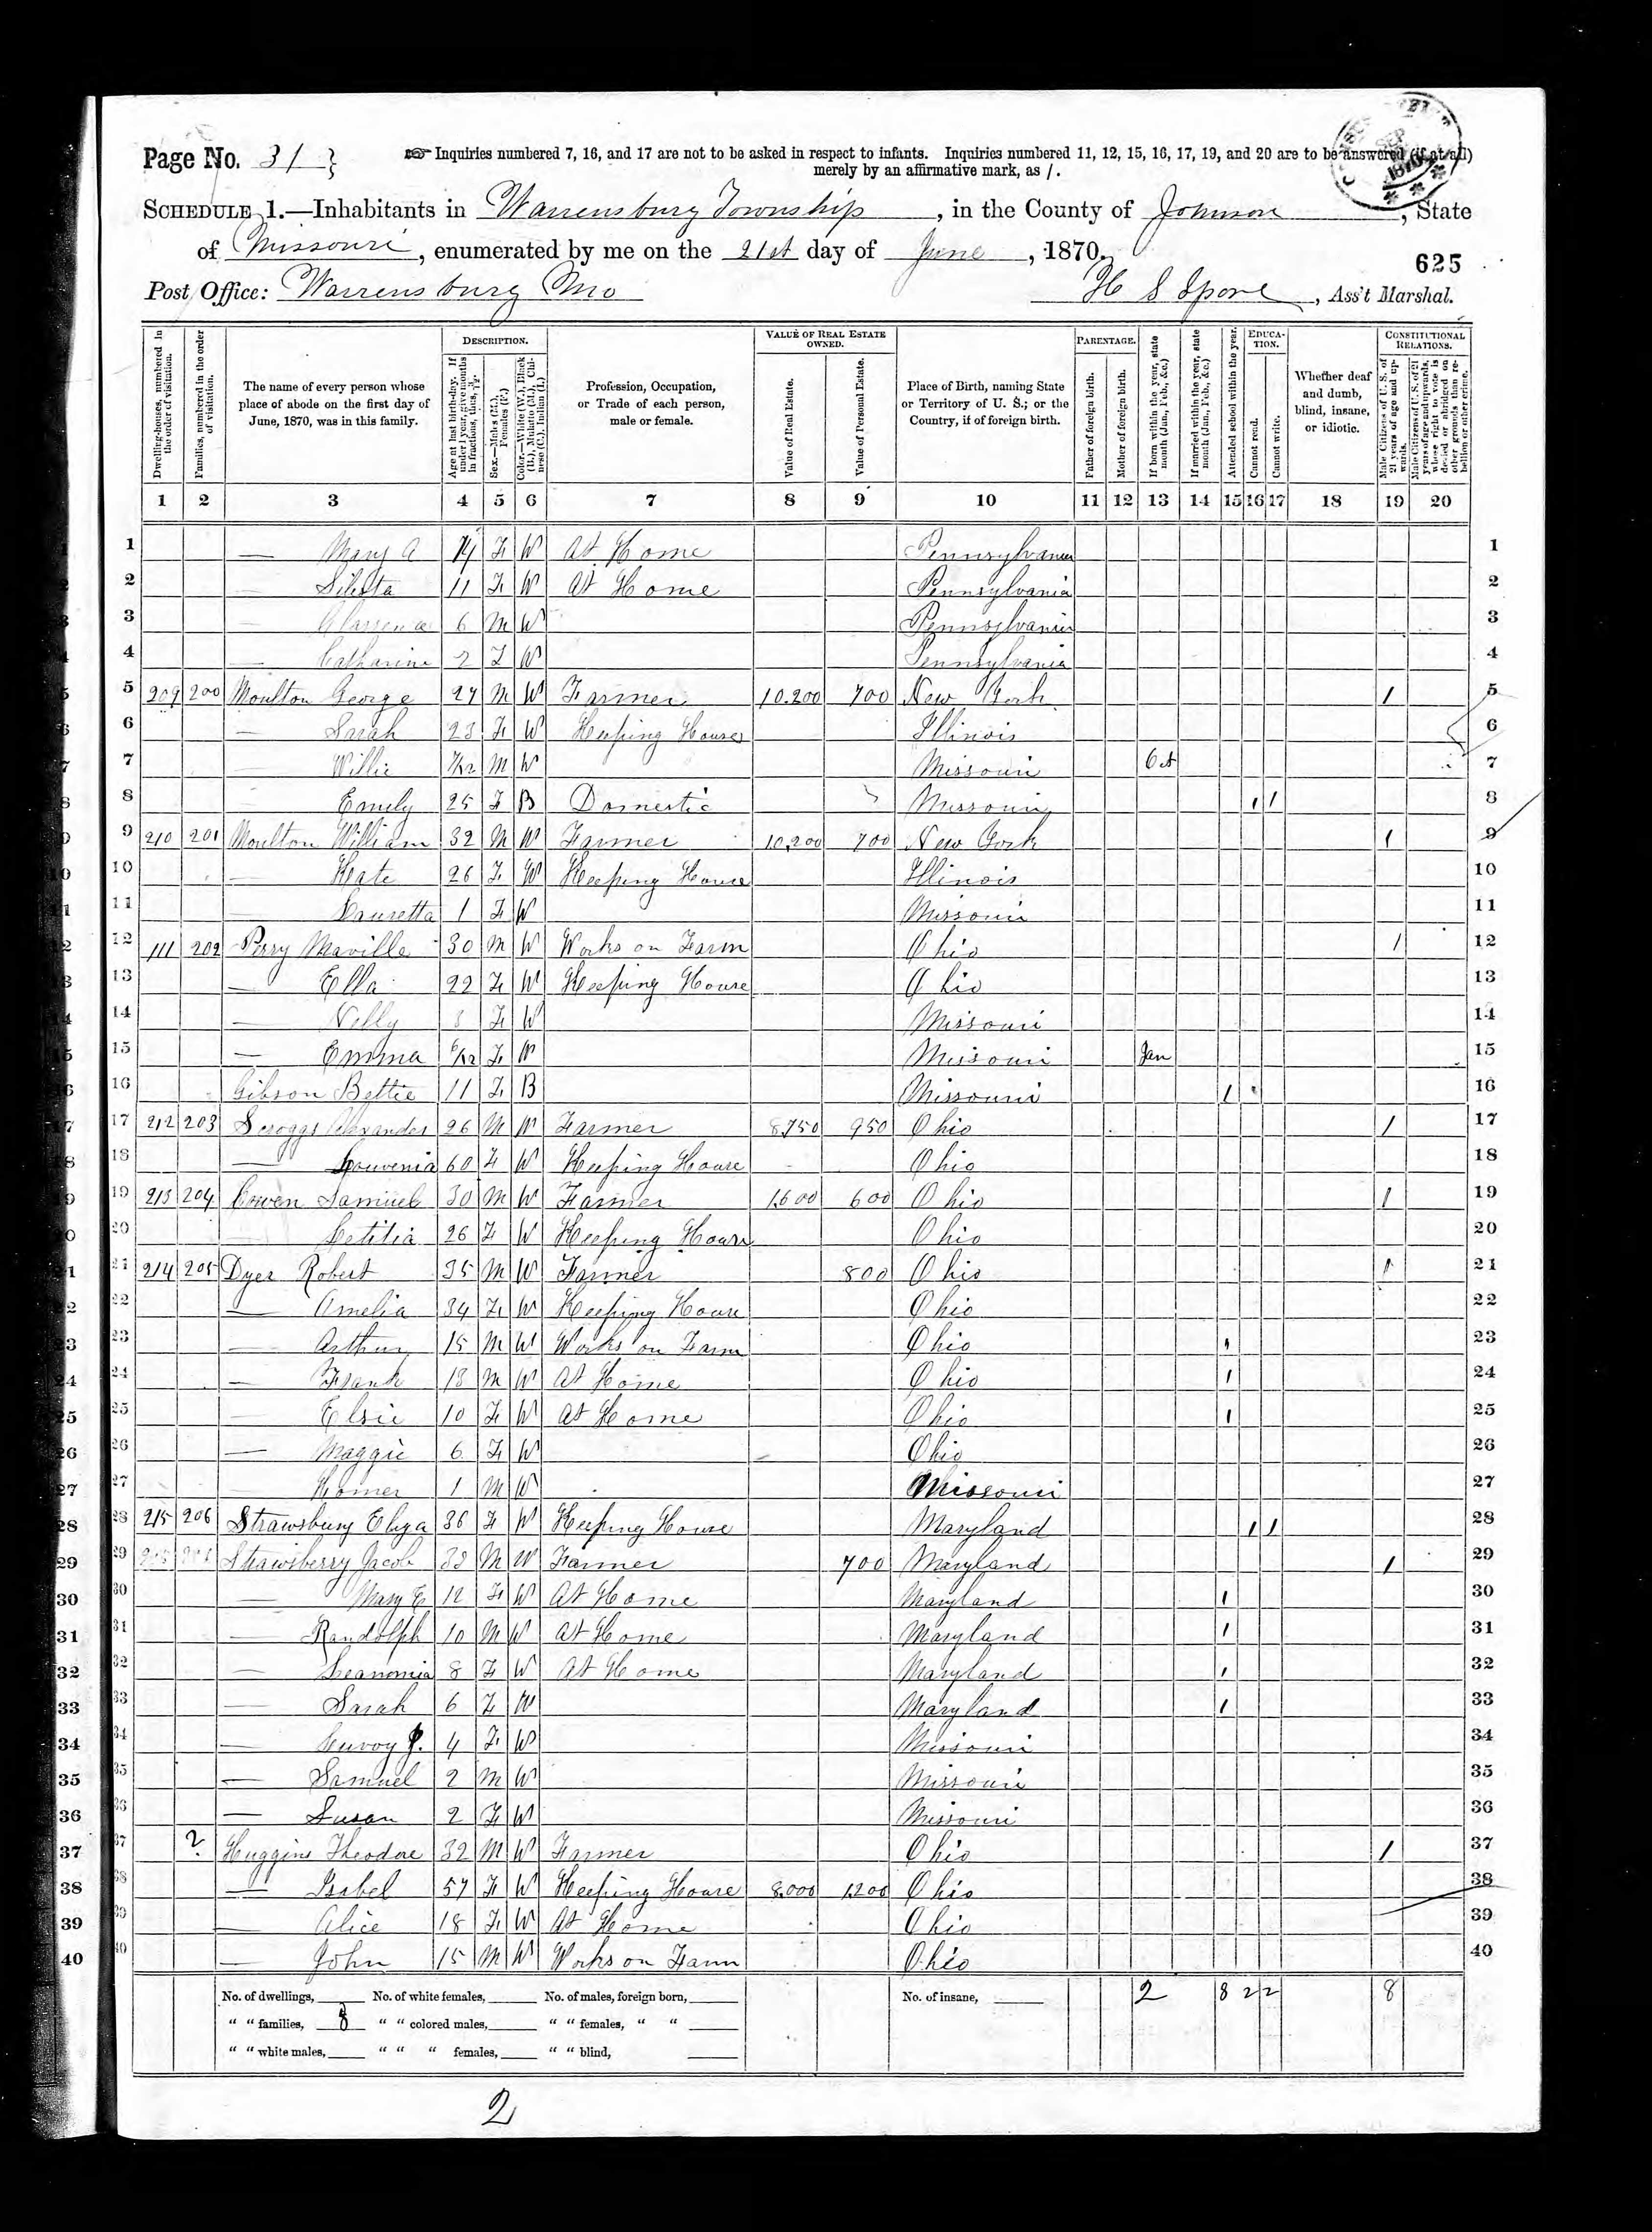 Page No. 31
☞ Inquiries numbered 7, 16, and 17 are not to be asked in respect to infants. Inquiries numbered 11, 12, 15, 16, 17, 19, and 20 are to be answered (if at all)
merely by an affirmative mark, as /.
SCHEDULE 1.—Inhabitants in Warrensburg Township, in the County of Johnson, State
of Missouri, enumerated by me on the 21st day of June, 1870.
625
Post Office: Warrensburg Mo
H S , Ass't Marshal.
Dwelling-houses, numbered in the order of visitation.
Families, numbered in the order of visitation.
The name of every person whose place of abode on the first day of June, 1870, was in this family.
DESCRIPTION.
Age at last birth-day. If under 1 year, give months in fractions, thus, 3/12.
Sex.—Males (M.), Females (F.)
Color.—White (W.), Black (B.), Mulatto (M.), Chinese (C.), Indian (I.)
Profession, Occupation, or Trade of each person, male or female.
VALUE OF REAL ESTATE OWNED.
Value of Real Estate.
Value of Personal Estate.
Place of Birth, naming State or Territory of U. S.; or the Country, if of foreign birth.
PARENTAGE.
Father of foreign birth.
Mother of foreign birth.
If born within the year, state month (Jan., Feb., &c.)
If married within the year, state month (Jan., Feb., &c.)
Attended school within the year.
EDUCATION.
Cannot read.
Cannot write.
Whether deaf and dumb, blind, insane, or idiotic.
CONSTITUTIONAL RELATIONS.
Male Citizens of U. S. of 21 years of age and upwards.
Male Citizens of U. S. of 21 years of age and upwards, whose right to vote is denied or abridged on other grounds than rebellion or other crime.
1 2 3 4 5 6 7 8 9 10 11 12 13 14 15 16 17 18 19 20
1 — Mary A 14 F W At Home Pennsylvania 1
2 — F W At Home Pennsylvania 2
3 — 6 M W Pennsylvania 3
4 — Catharine 2 F W Pennsylvania 4
5 209 200 Moulton George 27 M W Farmer 10.200 700 New York 1 5
6 — Sarah 23 F W Keeping House Illinois 6
7 — Willie M W Missouri Oct 7
8 — Emily 25 F B Domestic Missouri 1 1 8
9 210 201 Moulton William 32 M W Farmer 10,200 700 New York 1 9
10 — Kate 26 F W Keeping House Illinois 10
11 — Lauretta 1 F W Missouri 11
12 111 202 Perry Maville 30 M W Works on Farm Ohio 1 12
13 — Ella 22 F W Keeping House Ohio 13
14 — Nelly 3 F W Missouri 14
15 — Emma 6/12 F W Missouri Jan 15
16 Gibson Bettie 11 F B Missouri 1 16
17 212 203 Scroggs Alexander 26 M W Farmer 8750 950 Ohio 1 17
18 — Louvenia 60 F W Keeping House Ohio 18
19 213 204 Cowen Samuel 30 M W Farmer 1,600 600 Ohio 1 19
20 — Letitia 26 F W Keeping House Ohio 20
21 214 205 Dyer Robert 35 M W Farmer 800 Ohio 1 21
22 — Amelia 34 F W Keeping House Ohio 22
23 — Arthur 15 M W Works on Farm Ohio 1 23
24 — Frank 13 M W At Home Ohio 1 24
25 — Elsie 10 F W At Home Ohio 1 25
26 — Maggie 6 F W Ohio 26
27 — Homer 1 M W Missouri 27
28 215 206 Strawsbury Eliza 36 F W Keeping House Maryland 1 1 28
29 Strawsberry Jacob 38 M W Farmer 700 Maryland 1 29
30 — Mary E 12 F W At Home Maryland 1 30
31 — Randolph 10 M W At Home Maryland 1 31
32 — Leanomia 8 F W At Home Maryland 1 32
33 — Sarah 6 F W Maryland 1 33
34 — 4 F W Missouri 34
35 — Samuel 2 M W Missouri 35
36 — Susan 2 F W Missouri 36
37 ? Huggins Theodore 32 M W Farmer Ohio 1 37
38 — Isabel 57 F W Keeping House 8.000 1200 Ohio 38
39 — Alice 18 F W At Home Ohio 39
40 — John 15 M W Works on Farm Ohio 40
No. of dwellings, No. of white females, No. of males, foreign born, No. of insane, 2 8 2 2 8
" " families, 8 " " colored males, " " females, " "
" " white males, " " " females, " " blind,
2